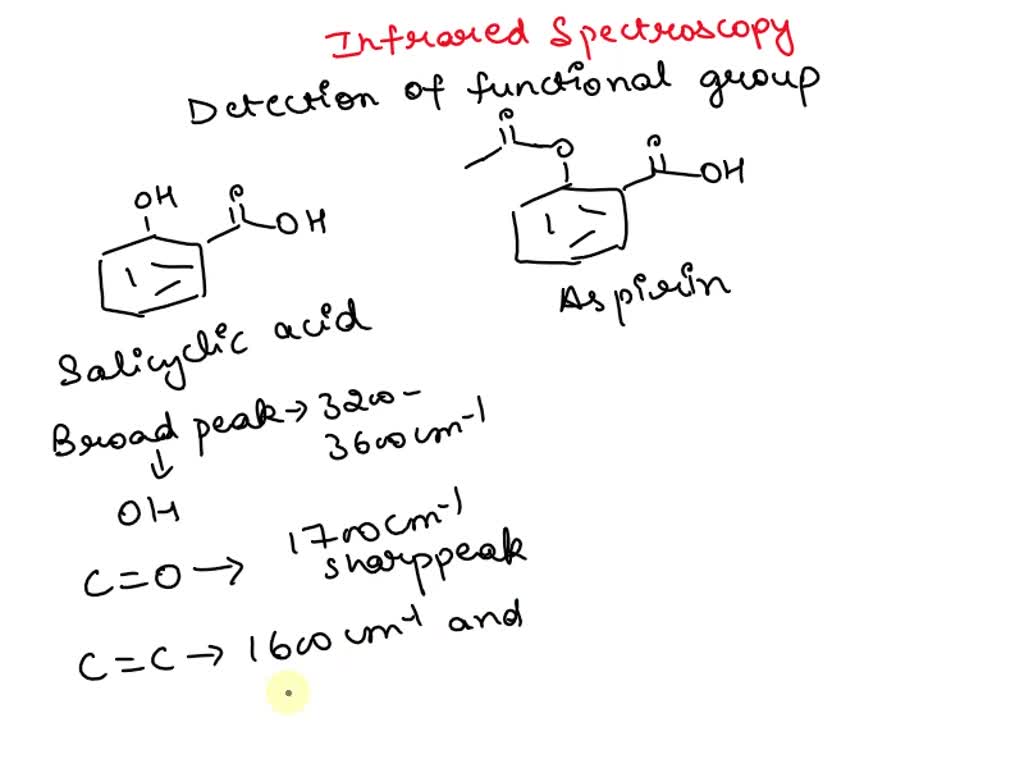 Infrared Spectroscopy
Detection of functional group
OH
O
OH
Salicyclic acid
O
O
O
OH
Aspirin
Broad peak → 3200 -
3600 cm-1
↓
OH
C=O → 1700 cm-1
sharp peak
C=C → 1600 cm-1 and